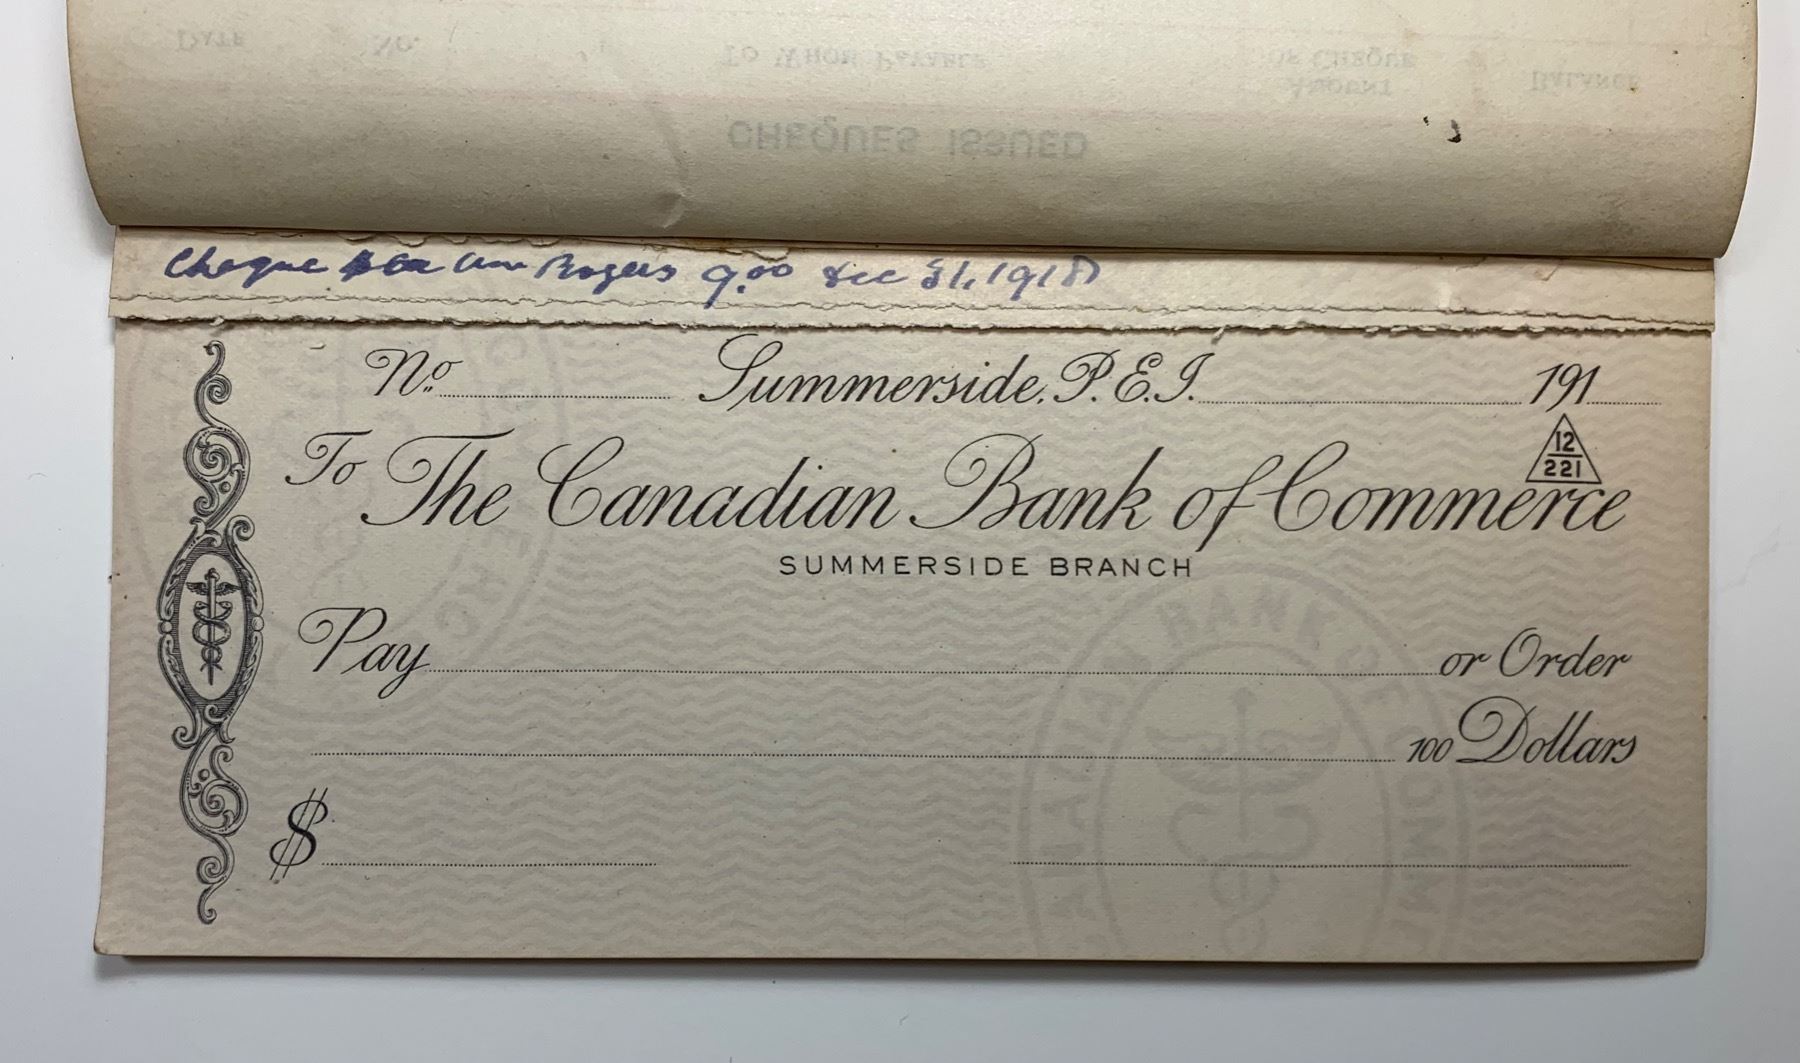 DATE No. TO WHOM PAYABLE AMOUNT OF CHEQUE BALANCE
CHEQUES ISSUED
Cheque Rogers 9.00 Dec 31, 1918
No. Summerside, P.E.I. 191
12
221
To The Canadian Bank of Commerce
SUMMERSIDE BRANCH
Pay or Order
100 Dollars
$
BANK OF